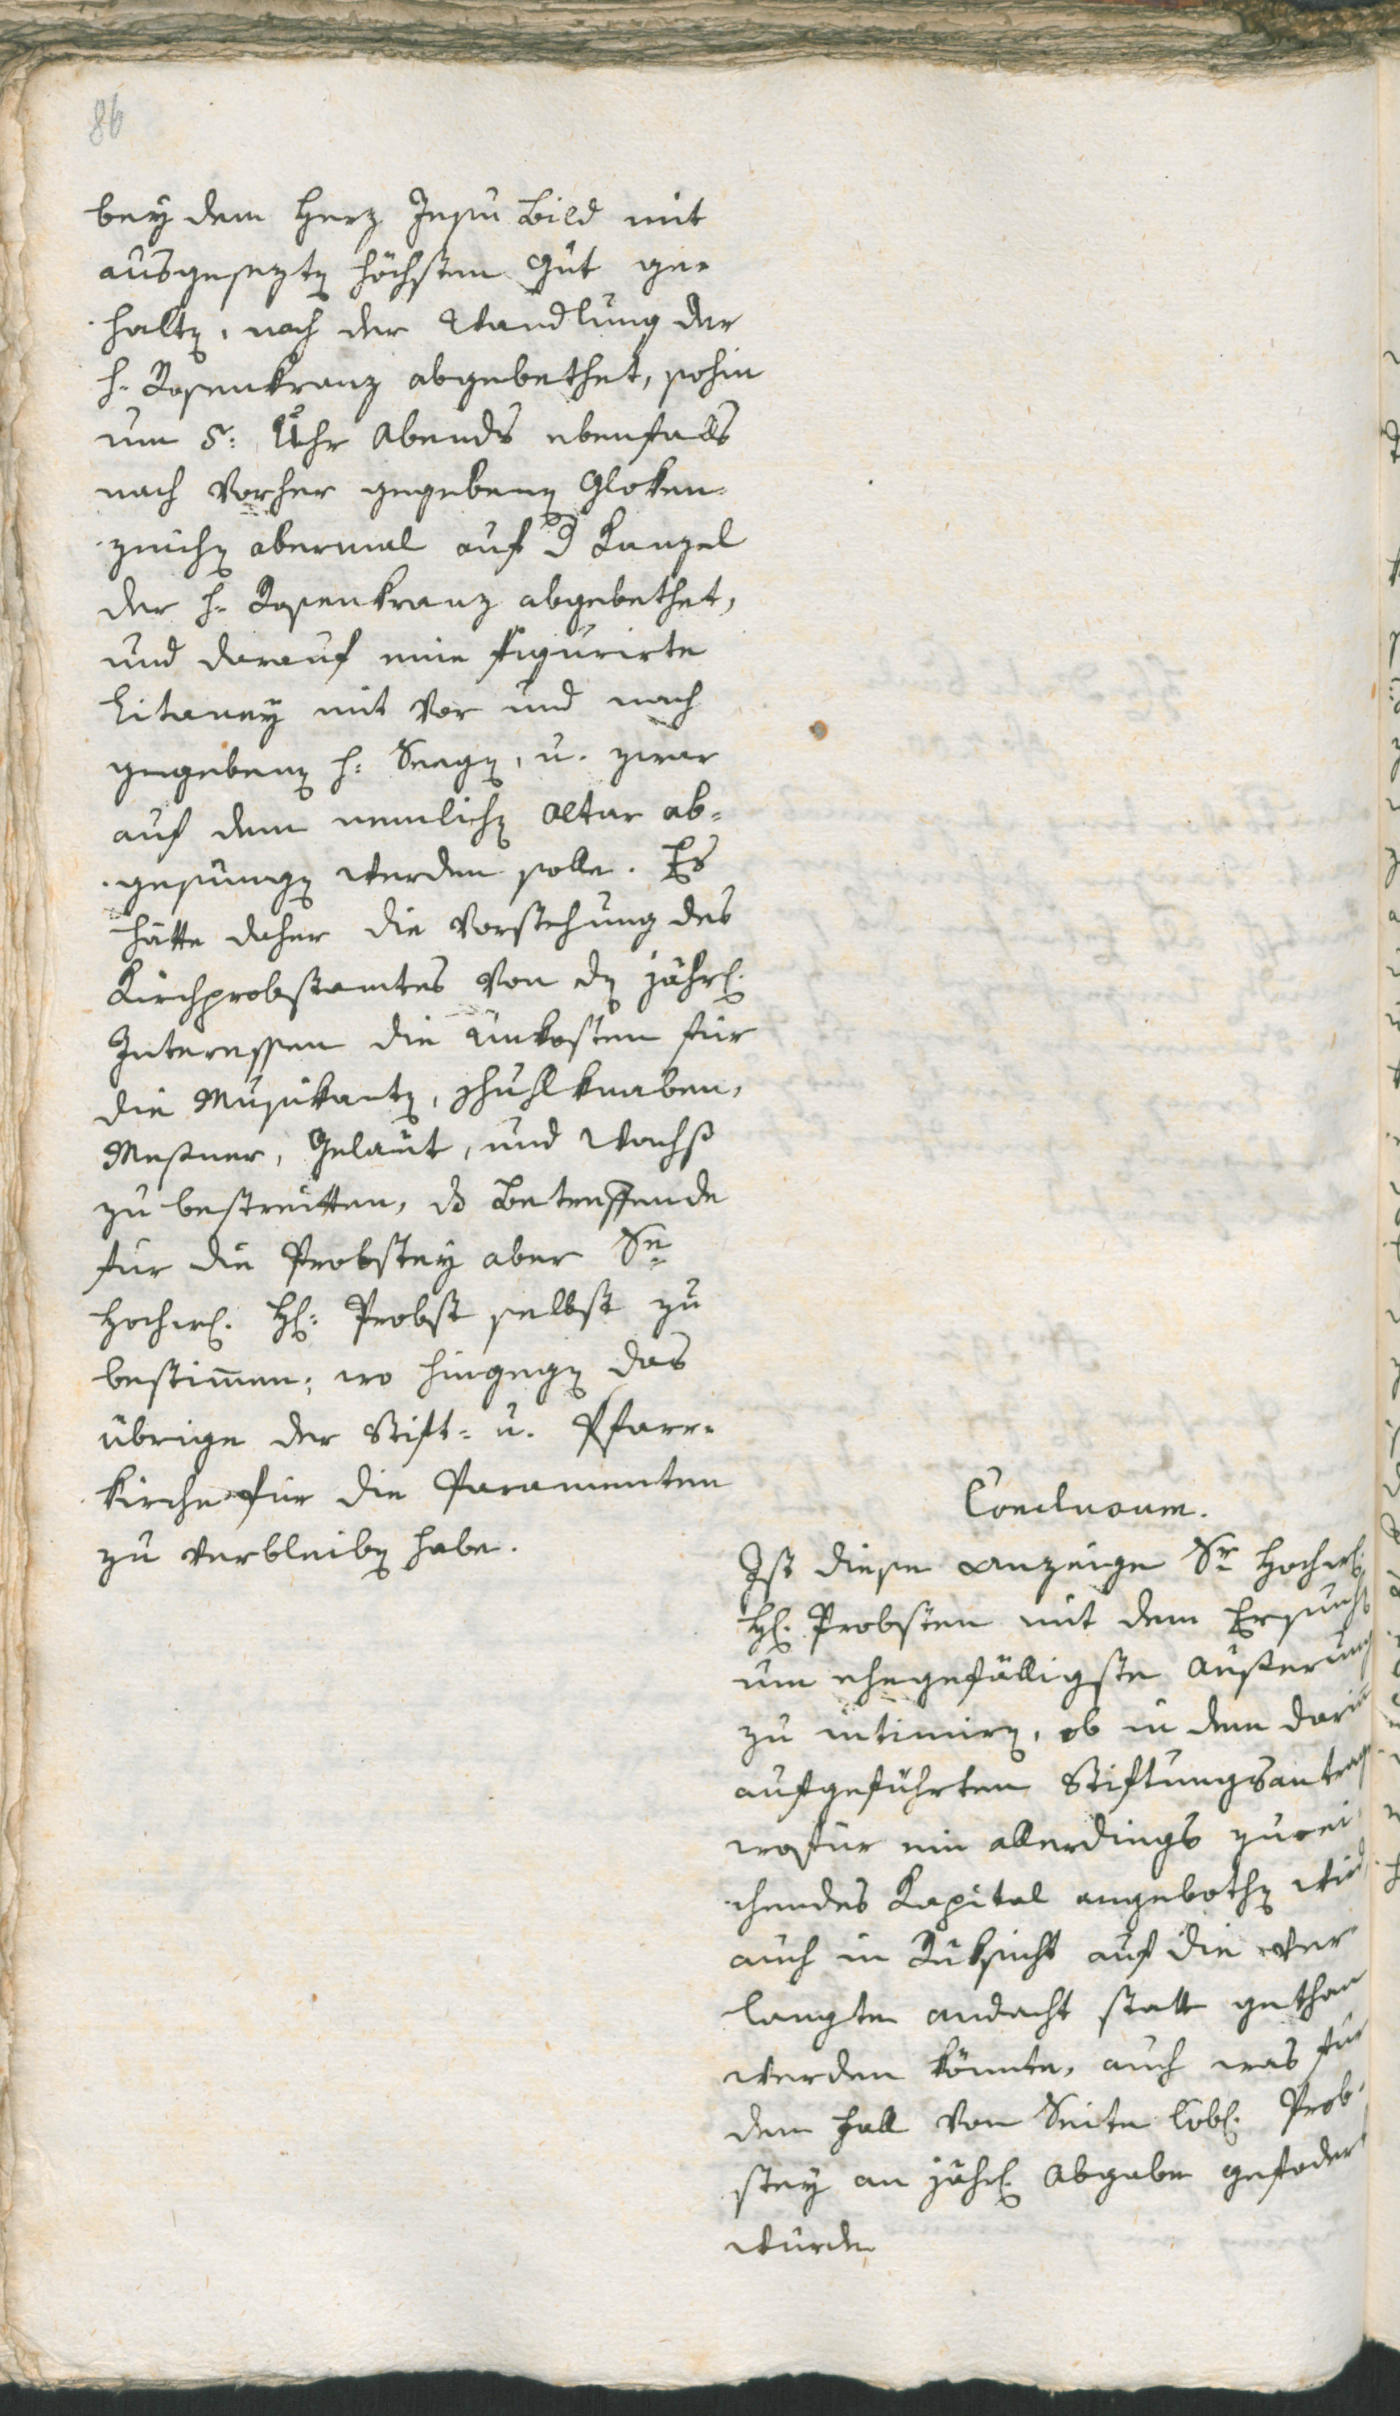 86
bey dem Herz Jesu Bild mit
ausgesezten höchsten Gut ge-
halten, nach der Wandlung der
h. Rosenkranz abgebethet, sohin
um 5: Uhr Abends ebenfalls
nach vorher gegebenen Gloken-
zeichen abermal auf d Kanzel
der h. Rosenkranz abgebethet,
und darauf eine figurirte
Litaney mit vor und nach
gegebenen h: Seegen, u. zwar
auf dem nemlichen Altar ab-
gesungen werden solle. Es
hätte daher die Vorstehung des
Kirchprobstamtes von den jährl.
Interessen die Unkosten für
die Musikanten, Schuhlknaben,
Meßner, Geläut, und Wachß
zu bestreitten, ds Betreffende
für die Probstey aber Se
Hochw. H: Probst selbst zu
bestimmen; wo hingegen das
übrige der Stift- u. Pfarr-
kirche für die Paramenten
zu verbleiben habe.
Conclusum.
Ist diese Anzeige Sr Hochw.
H. Probsten mit dem Ersuchen
um ehegefälligste Äußerung
zu intimiren, ob in dem darin
aufgeführten Stiftungsantrag
wofür ein allerdings zurei-
chendes Kapital angebothen wird
auch in Rüksicht auf die ver
langte Andacht statt gethan
werden könnte, auch was für
den Fall von Seite löbl. Prob-
stey an jährl. Abgabe gefodert
würde